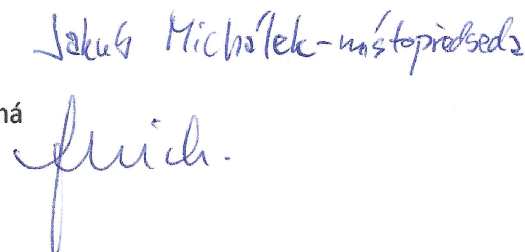 Jakub Michálek - místopředseda
ná